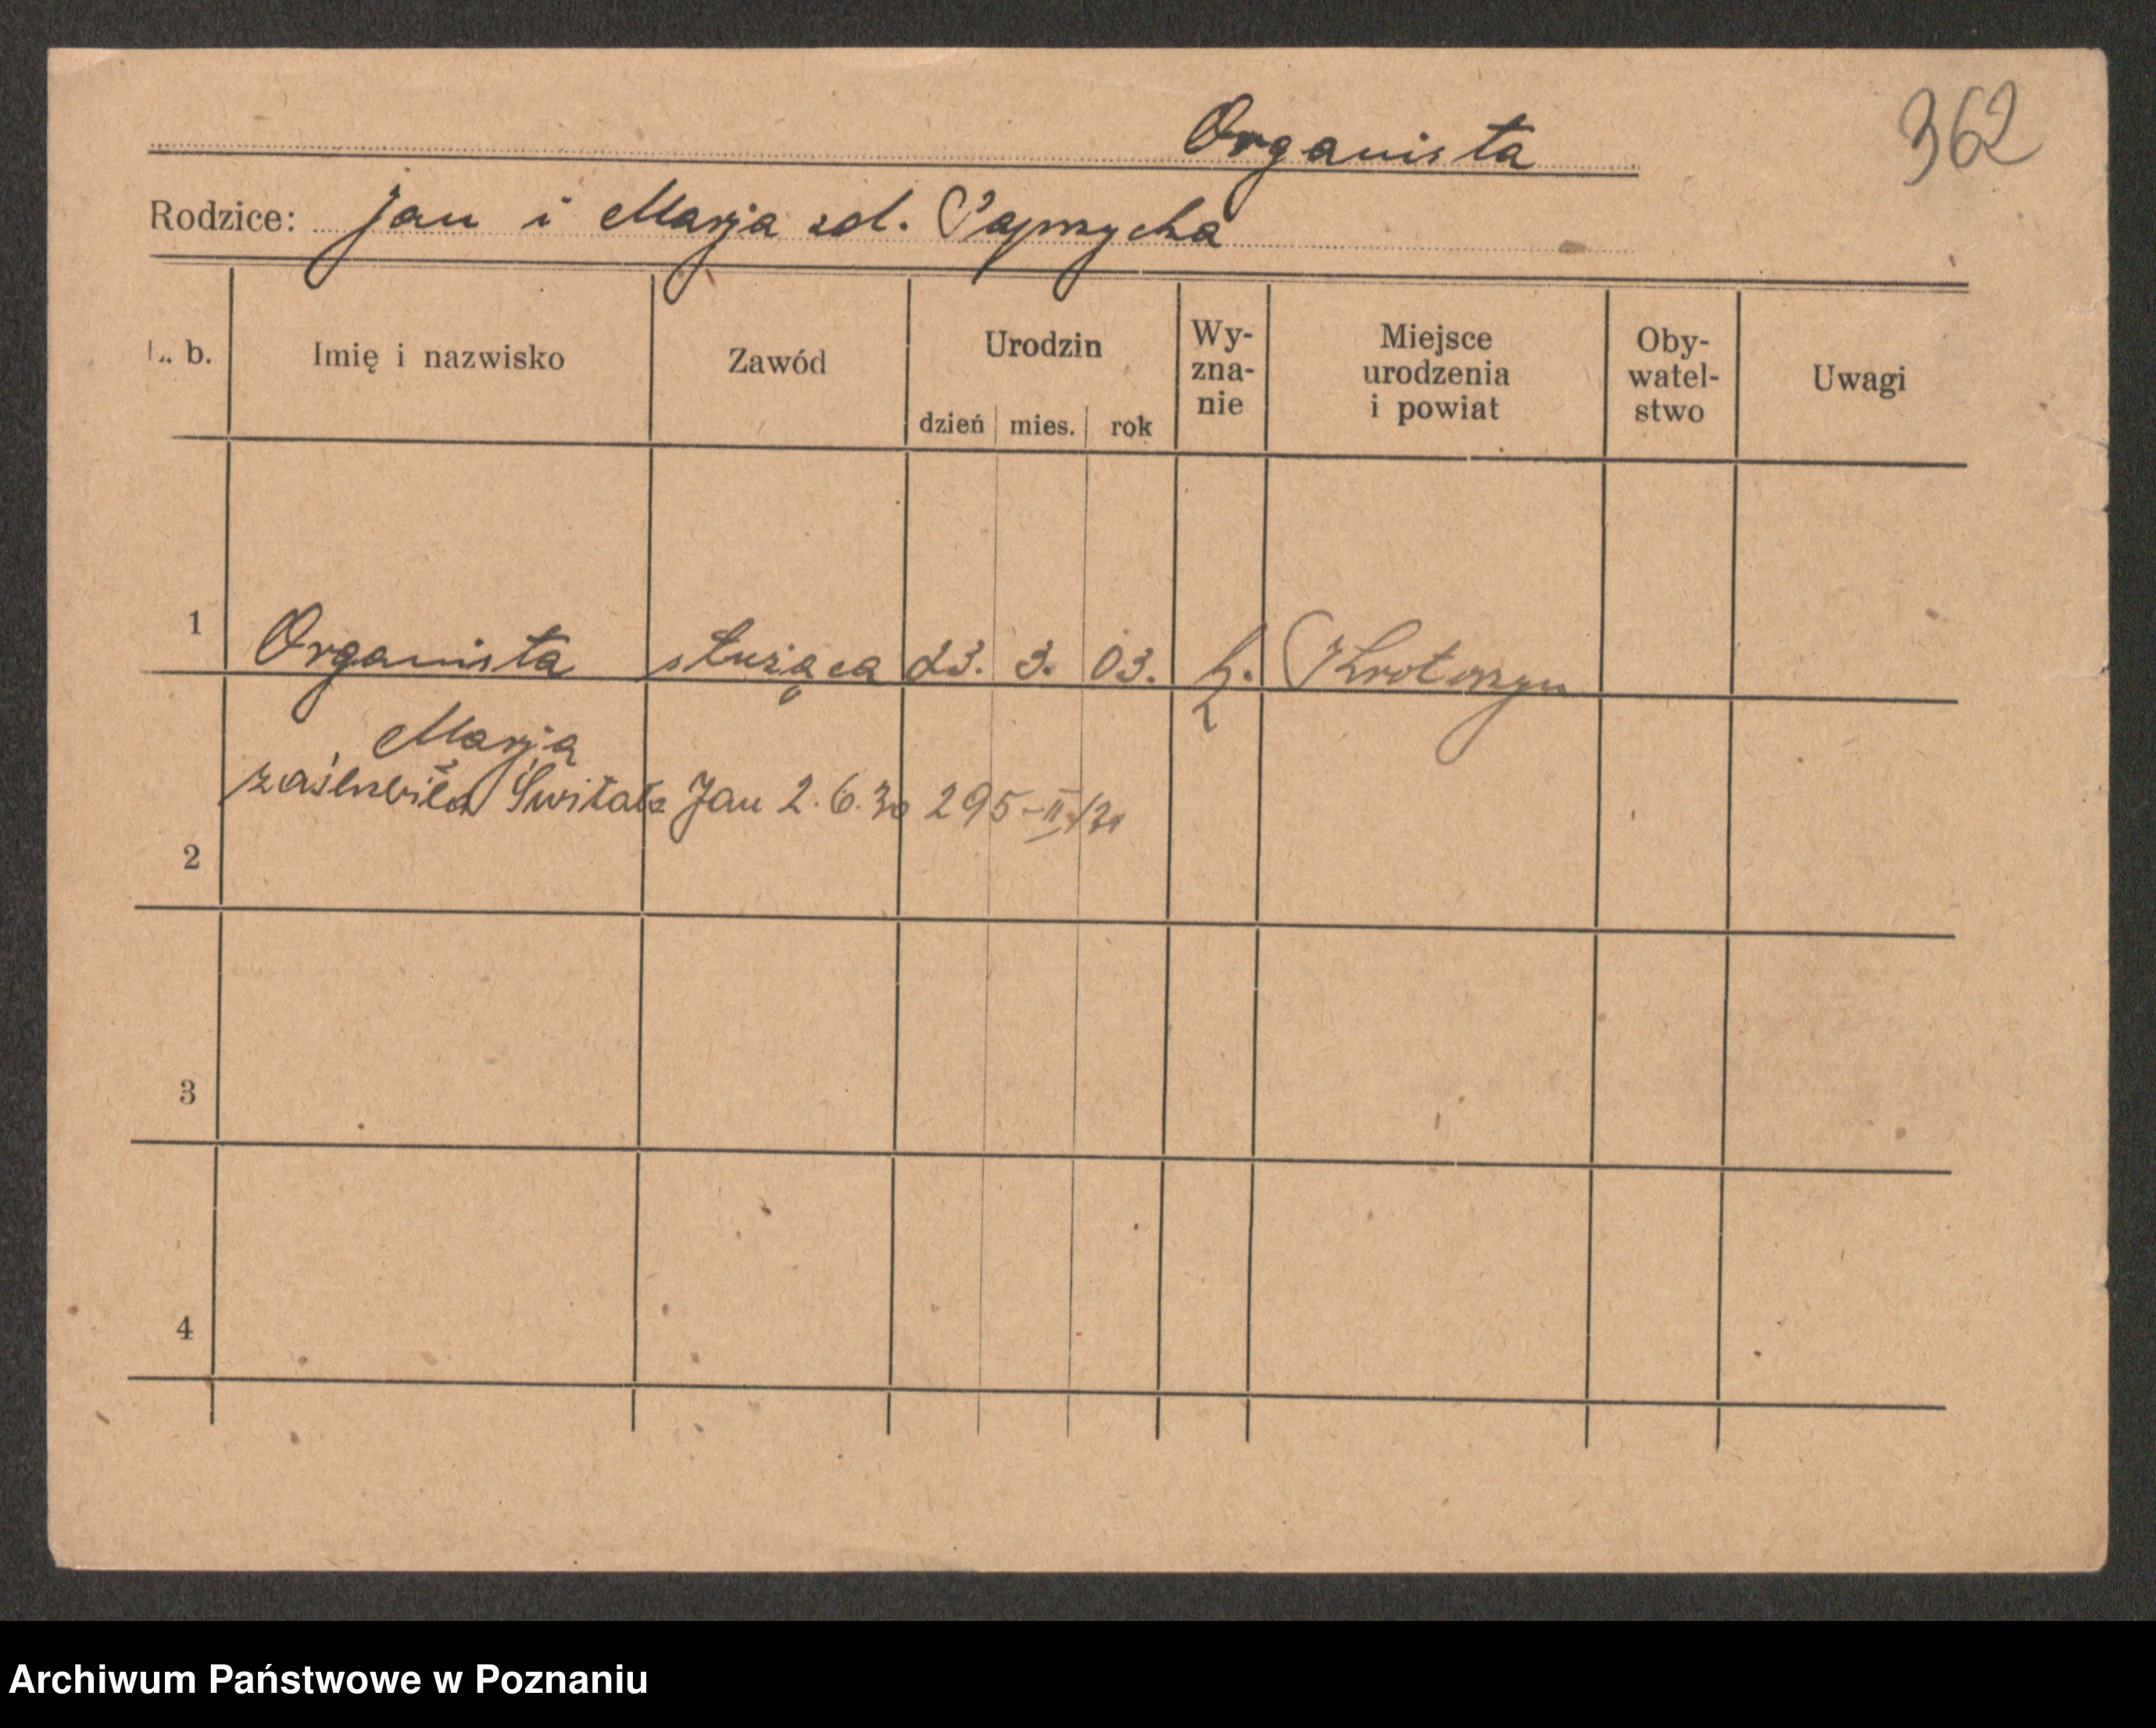 362
Organista
Rodzice: Jan i Marja zd. Paprzycka
L. b.
Imię i nazwisko
Zawód
Urodzin
dzień mies. rok
Wy-
zna-
nie
Miejsce
urodzenia
i powiat
Oby-
watel-
stwo
Uwagi
1 Organista służąca 23. 3. 03. k. Krotoszyn
Marja
zaślubiła Świtała Jan 2.6.30 295-II/30
2
3
4
Archiwum Państwowe w Poznaniu